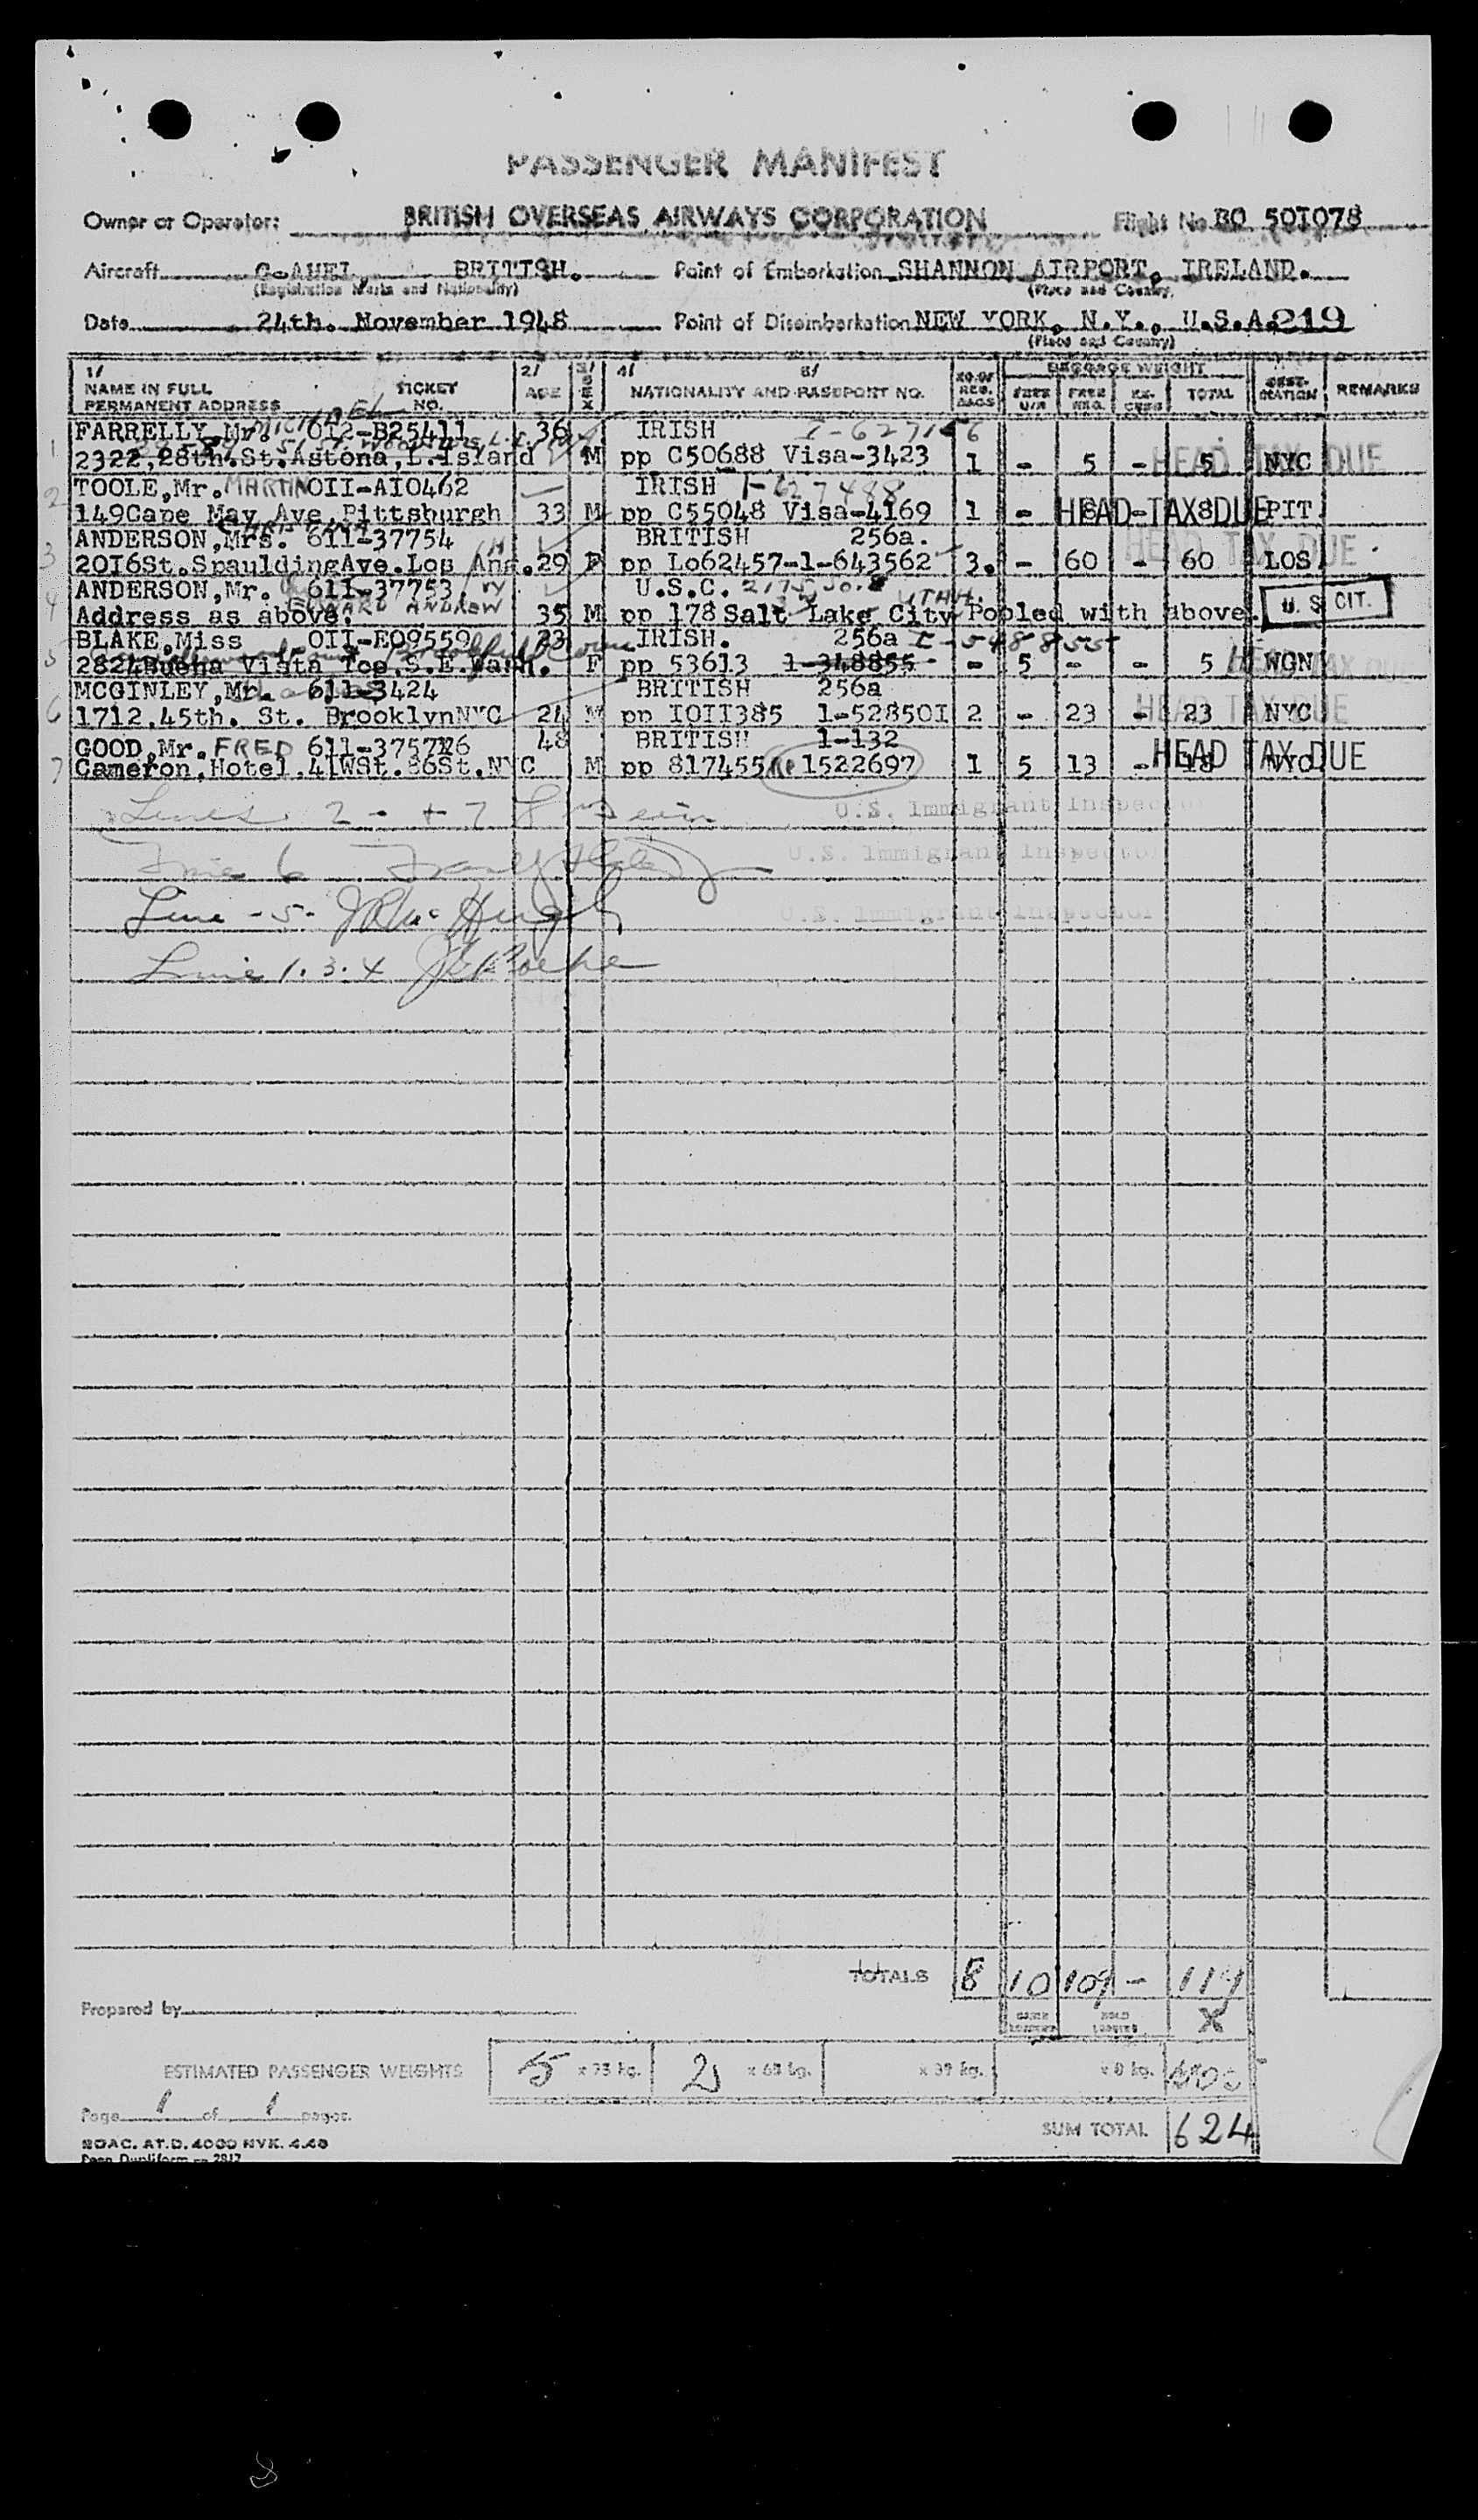 PASSENGER MANIFEST
Owner or Operator: BRITISH OVERSEAS AIRWAYS CORPORATION Flight No BO 50I078
Aircraft BRITISH. Point of Embarkation SHANNON AIRPORT, IRELAND.
(Registration Marks and Nationality) (Place and Country)
Date 24th. November 1948 Point of Disembarkation NEW YORK, N.Y., U.S.A. 219
(Place and Country)
1/ 2/ 3/ 4/ 5/ BAGGAGE WEIGHT
NAME IN FULL TICKET AGE SEX NATIONALITY AND PASSPORT NO. NO. OF REG. BAGS FREE U/R FREE REG. EX-CESS TOTAL DEST-INATION REMARKS
PERMANENT ADDRESS NO.
MICHAEL
FARRELLY, Mr. OI2-B25411 36 IRISH I-627156
1 2322, 28th. St. Astona, L. Island M pp C50688 Visa-3423 1 - 5 - 5 NYC HEAD TAX DUE
2 TOOLE, Mr. MARTIN OII-AI0462 IRISH I-627488
149 Cape May Ave Pittsburgh 33 M pp C55048 Visa-4169 1 - 8 - 8 PIT HEAD TAX DUE
CHRISTINA
ANDERSON, Mrs. 611-37754 BRITISH 256a.
3 20I6St. SpauldingAve. Los Ang. 29 F pp Lo62457-1-643562 3. - 60 - 60 LOS HEAD TAX DUE
4 ANDERSON, Mr. 61I-37753 U.S.C. UTAH.
EDWARD ANDREW
Address as above. 35 M pp 178 Salt Lake City Pooled with above. U.S. CIT.
BLAKE, Miss OII-E09559 23 IRISH. 256a I-548855
5 2824 Buena Vista Tce. S.E. Wash. F pp 53613 1-348855 - 5 - - 5 WGN HEAD TAX DUE
MCGINLEY, Mr. 611-3424 BRITISH 256a
6 1712. 45th. St. BrooklynNYC 24 M pp IOII385 1-52850I 2 - 23 - 23 NYC HEAD TAX DUE
GOOD, Mr. FRED 611-375726 48 BRITISH 1-132
7 Cameron. Hotel. 41WSt. 86St. NYC M pp 817455 1522697 1 5 13 - 18 NYC HEAD TAX DUE
Lines 2 - + 7 U.S. Immigrant Inspector
Line 6 U.S. Immigrant Inspector
Line - 5 - J R McHugh U.S. Immigrant Inspector
Line 1. 3. 4
TOTALS 8 10 109 - 119
Prepared by X
ESTIMATED PASSENGER WEIGHTS 5 x 73 kg. 2 x 68 kg. x 39 kg. x 8 kg.
Page 1 of 1 pages.
SUM TOTAL 624
BOAC. AT.D. 4000 NYK. 4.48